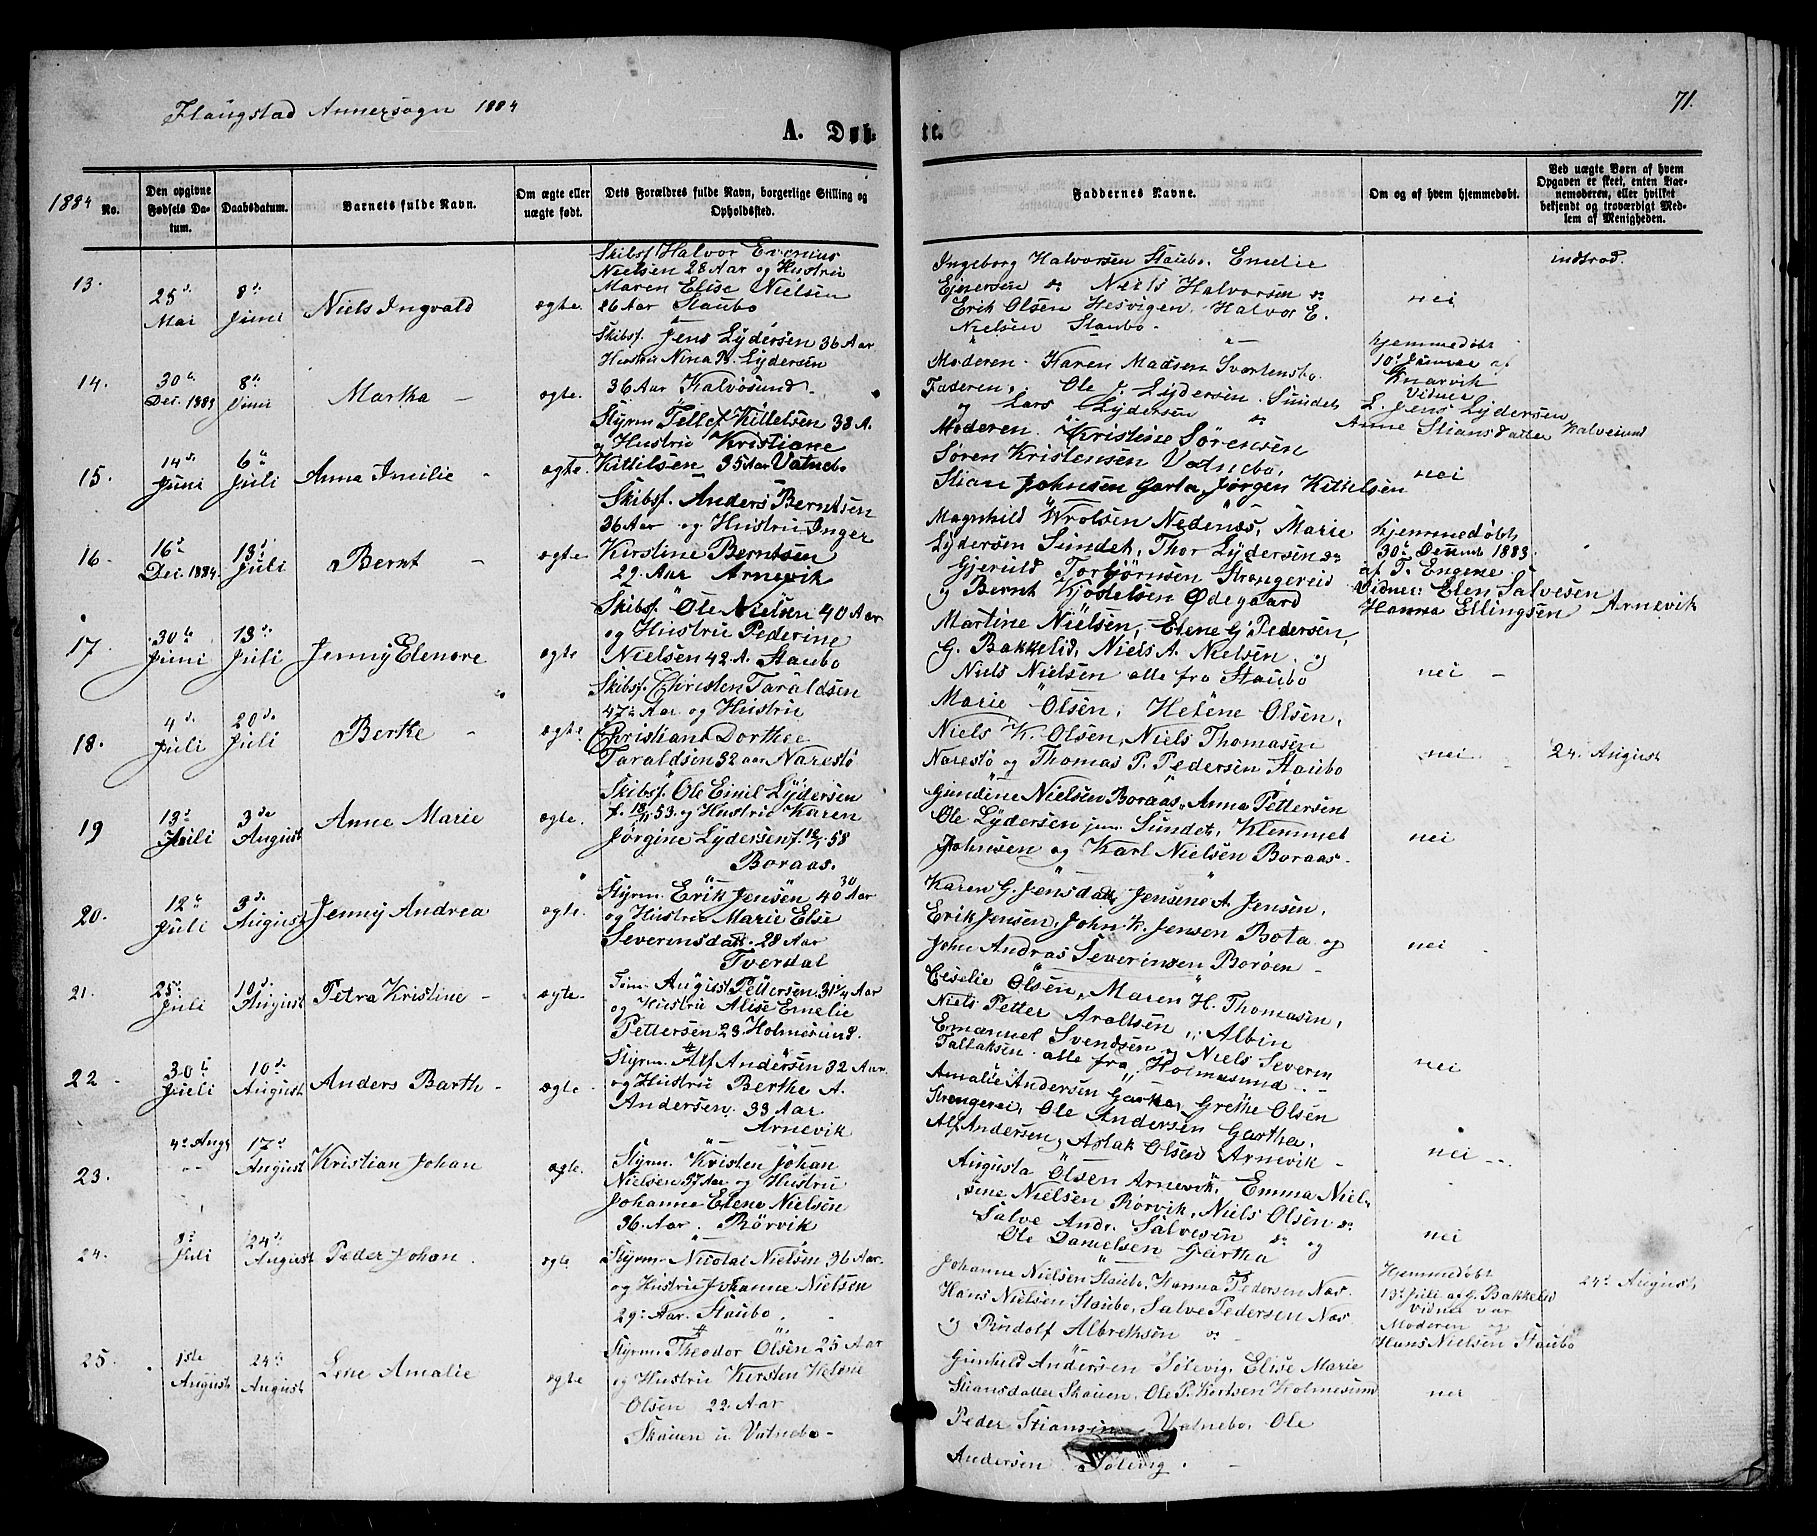 Flaugstad Annexsogn 1884
71.
A. Døb-
te.
1884
No.
Den opgivne Fødsels Da-
tum.
Daabsdatum.
Barnets fulde Navn.
Om ægte eller
uægte født.
Dets Forældres fulde Navn, borgerlige Stilling og
Opholdssted.
Faddernes Navne.
Om og af hvem hjemmedøbt.
Ved uægte Børn af hvem
Opgaven er skeet, enten Bar-
nemoderen, eller hvilket
bekjendt og troværdigt Med-
lem af Menigheden.
13.
25de Mai
8de Juni
Niels Ingvald
ægte.
Skibsf. Halvor Evenius
Nielsen 28 Aar og Hustru
Maren Elise Nielsen
26 Aar Staubo
Ingeborg Halvorsen Staubo, Emelie
Ejnersen do Niels Halvorsen do
Erik Olsen Hesvigen, Halvor E.
Nielsen Staubo.
nei
indtrad.
14.
30te Dei. 1883
8de Juni
Martha
ægte.
Skibsf. Jens Lydersen 36 Aar
Hustru Nina B. Lydersen
36 Aar Kalvøsund
Moderen. Karen Madsen Svartensbo
Faderen, Ole J. Lydersen Sundet
og Lars Lydersen do
hjemmedøbt
10de Januar af
Knarvik
Vidner
L. Jens Lydersen
Anne Stiansdatter Kalvesund
15.
14de Juni
6te Juli
Anna Emilie
ægte.
Styrm Tellef Kittelsen 38 A.
og Hustru Kristiane
Kittilsen 35 Aar Vatnebo
Moderen. Kristine Sörensen
Sören Kristensen Vatnebo,
Stian Johnsen Garta, Jørgen Kittelsen
nei
16.
16de Dei. 1884.
13de Juli
Bernt
ægte.
Skibsf. Anders Berntsen
36 Aar og Hustru Inger
Kirstine Berntsen
29 Aar Arnevik
Magnhild Wrolsen Nedenæs, Marie
Lydersen Sundet, Thor Lydersen do
Gjeruld Torbjörnsen Strengereid
og Bernt Kjøstelsen Ødegaard
hjemmedøbt
30te Decemb 1883
af T. Engene
Vidner: Elen Salvesen
Hanna Ellingsen Arnevik
17.
30te Juni
13de Juli
Jenny Elenore
ægte
Skibsf. Ole Nielsen 40 Aar
og Hustru Pederine
Nielsen 42 A. Staubo
Martine Nielsen, Elene G. Pedersen,
G. Bakkelid, Niels A. Nielsen. og
Niels Nielsen alle fra Staubo
nei
18.
4de Juli
20de Juli
Berthe
ægte.
Skibsf. Christen Taraldsen
47 Aar og Hustru
Christiane Dorthea
Taraldsen 32 aar Narestö
Marie Olsen, Helene Olsen,
Niels K. Olsen, Niels Thomasen
Narestö og Thomas P. Pedersen Staubo
nei
24. August
19
13de Juli
3de August
Anne Marie
ægte.
Skibsf. Ole Emil Lydersen
f. 18/11 53. og Hustru Karen
Jørgine Lydersen f. 12/1 58
Boraas.
Gundine Nielsen Boraas, Anna Pettersen
Ole Lydersen jun. Sundet, Klemmet
Johnsen og Karl Nielsen Boraas.
nei
20.
12te Juli
3de August
Jenny Andrea
ægte.
Styrm. Erik Jensen 40 30 Aar
og Hustru Marie Else
Severinsdatt. 28 Aar
Tverdal
Karen G. Jensdatt, Jensine A. Jensen,
Erik Jensen, John K. Jensen Bota og
John Andras Severinsen Borøen
nei
21.
25de Juli
10de August
Petra Kristine
ægte.
Töm. August Pettersen 31 1/4 Aar
og Hustru Alise Emelie
Pettersen 23 Holmesund.
Ceselie Olsen, Maren H. Thomasen,
Niels Petter Aroltsen, Albin
Emanuel Svendsen og Niels Severin
Taltaksen. alle fra Holmesund
nei
22
30te Juli
10de August
Anders Barth
ægte.
Styrm. Alf Andersen 32 Aar.
og Hustru Berthe A.
Andersen. 33 Aar
Arnevik
Amalie Andersen Gartha, Grethe Olsen
Strengerei, Ole Andersen Gartha,
Alf Andersen, Aslak Olsen Arnevik
nei
23.
4de Augs
17de August
Kristian Johan
ægte.
Styrm. Kristen Johan
Nielsen 37 Aar og Hustru
Johanne Elene Nielsen
36 Aar. Rörvik
Augusta Olsen Arnevik, Emma Niel-
sine Nielsen Rörvik, Niels Olsen do
Salve Andr. Salvesen do og
Ole Danielsen Gartha
nei
24.
3de Juli
24de August
Peder Johan
ægte
Styrm Nicolai Nielsen 36 Aar.
og Hustru Johanne Nielsen
29. Aar. Staubo.
Johanne Nielsen Staubo, Hanna Pedersen Næs.
Hans Nielsen Staubo, Salve Pedersen Næs.
og Rudolf Albrektsen do
Hjemmedøbt
13de Juli af G. Bakkelid
Vidner var
Moderen og
Hans Nielsen Staubo
24de August
25.
1ste August
24de August
Lene Amalie
ægte
Styrm Theodor Olsen 25 Aar
og Hustru Kirsten Helene
Olsen 22 Aar
Skauen i Vatnebo
Gunhild Andersen Sølevig, Elise Marie
Stiansdatter Skauen, Ole P. Kortsen Holmesund
Peder Stiansen Vatnebo, Ole
Andersen Sølevig.
nei